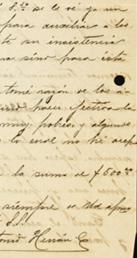 S.ª se le vi ya un
para auxiliar á los
te su insistencia
na sino para esta
tomé razon de los a
hacer efectiva la
muy pobres, y algunos
lo cual no he acep
la suma de ₡500.
siempre su Sto. afmo.
S.S.
Hernán C